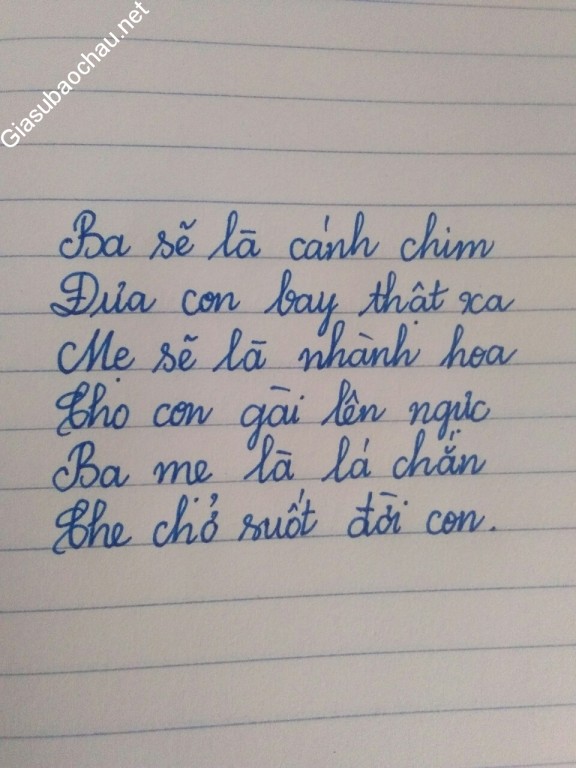 Giasubaochau.net
Ba sẽ là cánh chim
Đưa con bay thật xa
Mẹ sẽ là nhành hoa
Cho con gài lên ngực
Ba mẹ là lá chắn
Che chở suốt đời con.